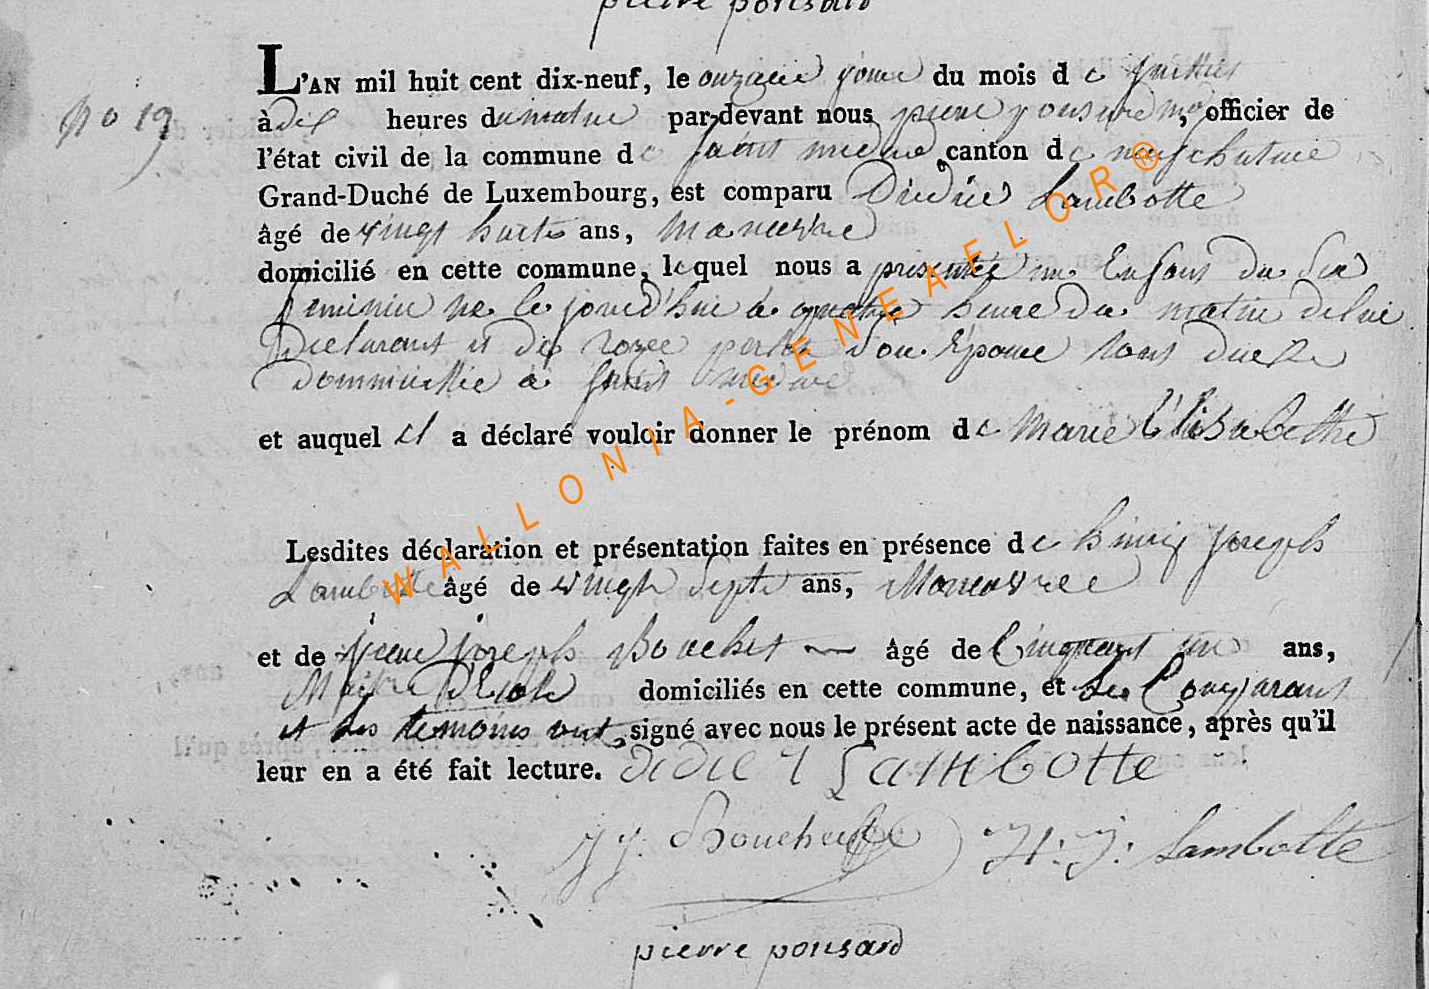 pierre pousard
L'AN mil huit cent dix-neuf, le onzieme jour du mois de juillet
No 19 à dix heures du matin par-devant nous pierre pousard officier de
l'état civil de la commune de saint medard canton de neufchateau
Grand-Duché de Luxembourg, est comparu Didier Lambotte
âgé de vingt huit ans, manuvre
domicilié en cette commune, lequel nous a presentée un Enfant du Sex
feminin ne le jourd'hui à quatre heure du matin de lui
Declarant et de rosee son Epouse tous deux
domicillie à saint medard
et auquel il a déclaré vouloir donner le prénom de Marie Elisabethe
Lesdites déclaration et présentation faites en présence de henry joseph
Lambotte âgé de vingt Sept ans, Manouvree
et de jean joseph Bouchet âgé de Cinquant un ans,
Maitre D'Ecole domiciliés en cette commune, et Les Comparant
et Les temoins ont signé avec nous le présent acte de naissance, après qu'il
leur en a été fait lecture. didier Lambotte
J J. Bouchet H. J. Lambotte
pierre pousard
WALLONIA-GENEAFLOR®